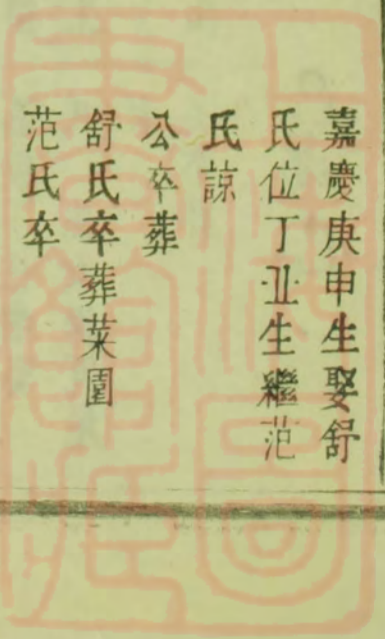 嘉慶庚申生娶舒
氏位丁丑生繼范
氏諒
公卒葬
舒氏卒葬菜園
范氏卒
上海圖
書館藏